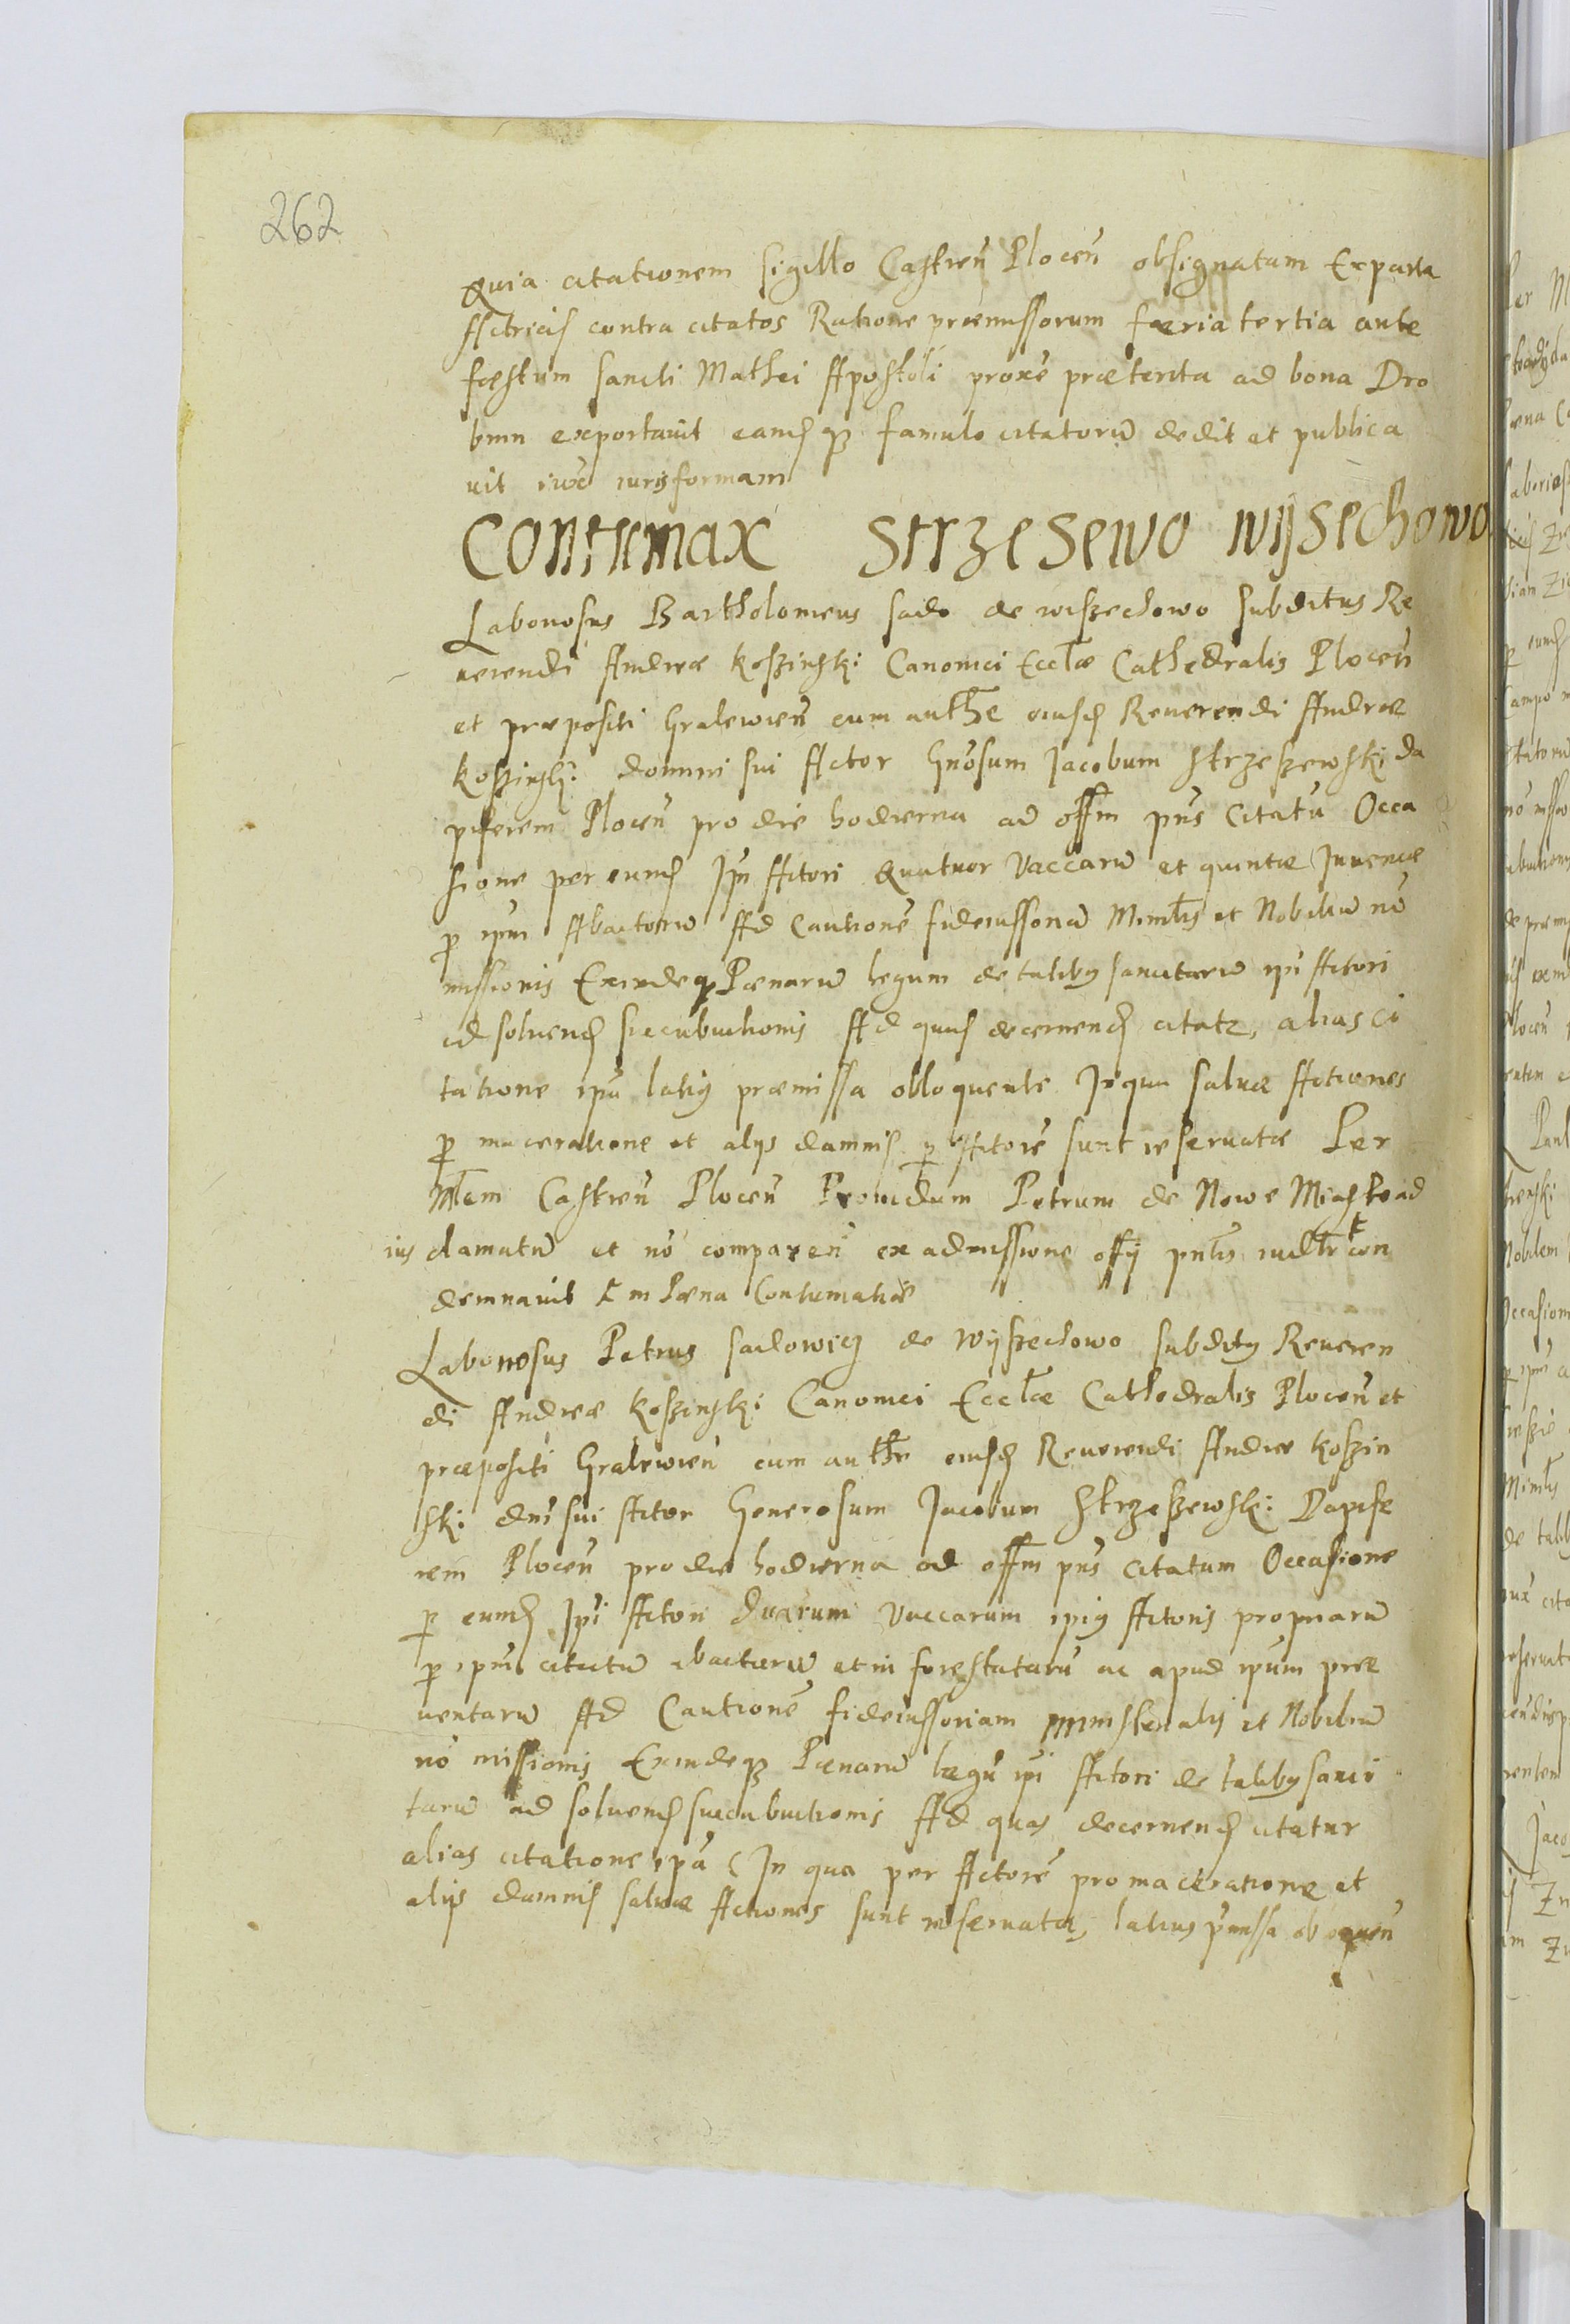 262
Quia citationem sigillo Castren̄ Plocen̄ obsignatam Ex parte
Actricis contra citatos Ratione præmissorum færia tertia ante
fæstum sancti Mathei Apostoli proxē præterita ad bona Dro
bnin exportavit eamq̨ famulo citatorū dedit et publica
vit iuxᵃ iuris formam
Contumax Strzesewo wijsechowo
Laboriosus Bartholomeus sado de wiszechowo subditus Re
verendi Andreæ koszinski Canonici Ecclæ Cathedralis Plocen̄
et præpositi Gralewien̄ cum authe eiusd Reverendi Andreæ
koszinski domini sui Actor Gnosum Jacobum Strzeszewski Da
piferem Plocen̄ pro die hodierna ad offm pn̄s citatū Occa
sione per eund Ipi Actori Quatuor vaccarū et quintæ Juvencæ
p ipm Abactarū Ad Cautionē fideiussoriā Minlis et Nobiliū nō
missionis Exindeq̨ Pœnarū legum de talibq sancitarū ipi Actori
ad solvend succubitionis Ad quas decernend citatꝛ, alias ci
tatione ipa latiq præmissa obloquente In qua salvæ Actiones
p maceratione et alijs damnis p Actorē sunt reservatæ Per
Mlem Castren̄ Plocen̄ Providum Petrum de Nowe Miasto ad
ius clamatū et nō comparen̄ ex admissione offij pn̄tis iudlr con
demnavit in Pœna Contumatiæ
Laboriosus Petrus sadowicz de wijszechowo subditq Reveren
di Andreæ koszinski Canonici Ecclæ Cathedralis Plocen̄ et
præpositi Gralewien̄ cum authe eiusd Reverendi Andreæ koszin
ski dni sui Actor Generosum Jacobum Strzeszewski Dapife
rem Plocen̄ pro die hodierna ad offm pn̄s citatum Occasione
p eund Ipi Actori duarum vaccarum ipiq Actoris propriarū
p ipm citatū abactarū et in forestatarū ac apud ipum præ
ventarū Ad Cautionē fideiussoriam ministerialis et Nobiliū
nō missionis Exindeq̨ Pœnarū legū ipi Actori de talibq sanci
tarū ad solvend succubitionis Ad quas decernend citatur
alias citatione ipā (In qua per Actorē pro maceratione et
alijs damnis salvæ Actiones sunt reservatæ, latius pmissa obloquen̄